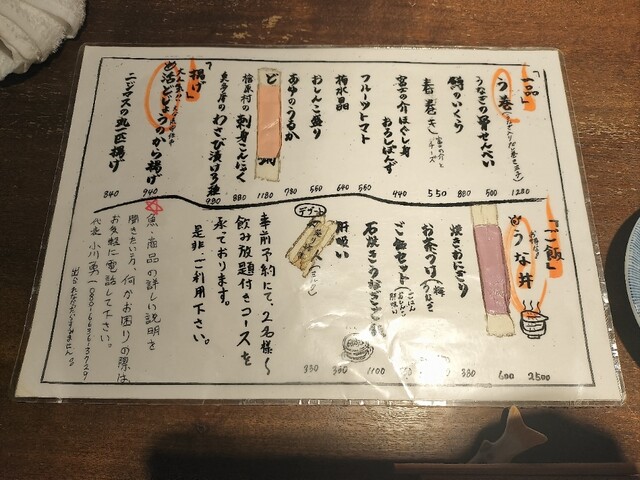 「一品」
う巻
1280
うなぎの骨せんべい
500
鱒のいくら
880
春巻き
550
富士の介ほぐし身
おろしぽんず
440
フルーツトマト
560
梅水晶
640
おしんこ盛り
550
あゆのうるか
780
ど
1180
檜原村の刺身こんにゃく
880
奥多摩のわさび漬け3種
980
「揚げ」
活どじょうのから揚げ
940
ニジマスの丸一匹揚げ
840
「ご飯」
うな丼
2500
600
焼きおにぎり
380
お茶づけ
ご飯セット
石焼きうなぎ
1100
肝吸い
330
デザート
330
事前予約にて、2名様〜
飲み放題付きコースを
承ております。
是非ご利用下さい。
魚、商品の詳しい説明を
聞きたい方、何かお困りの際は
お気軽に電話して下さい。
代表 小川 勇一
出られなかったらすみません